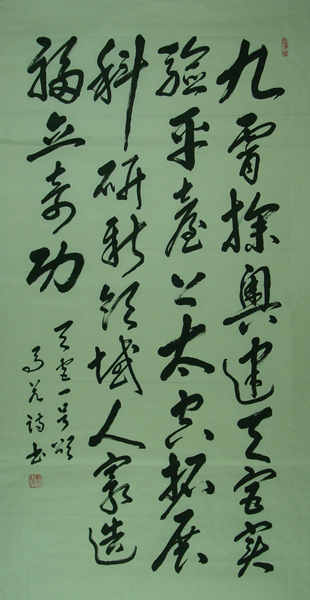 九霄探奥建天宫实
验平臺上太空拓展
科研新领域人寰造
福立奇功
天宫一号颂
诗书